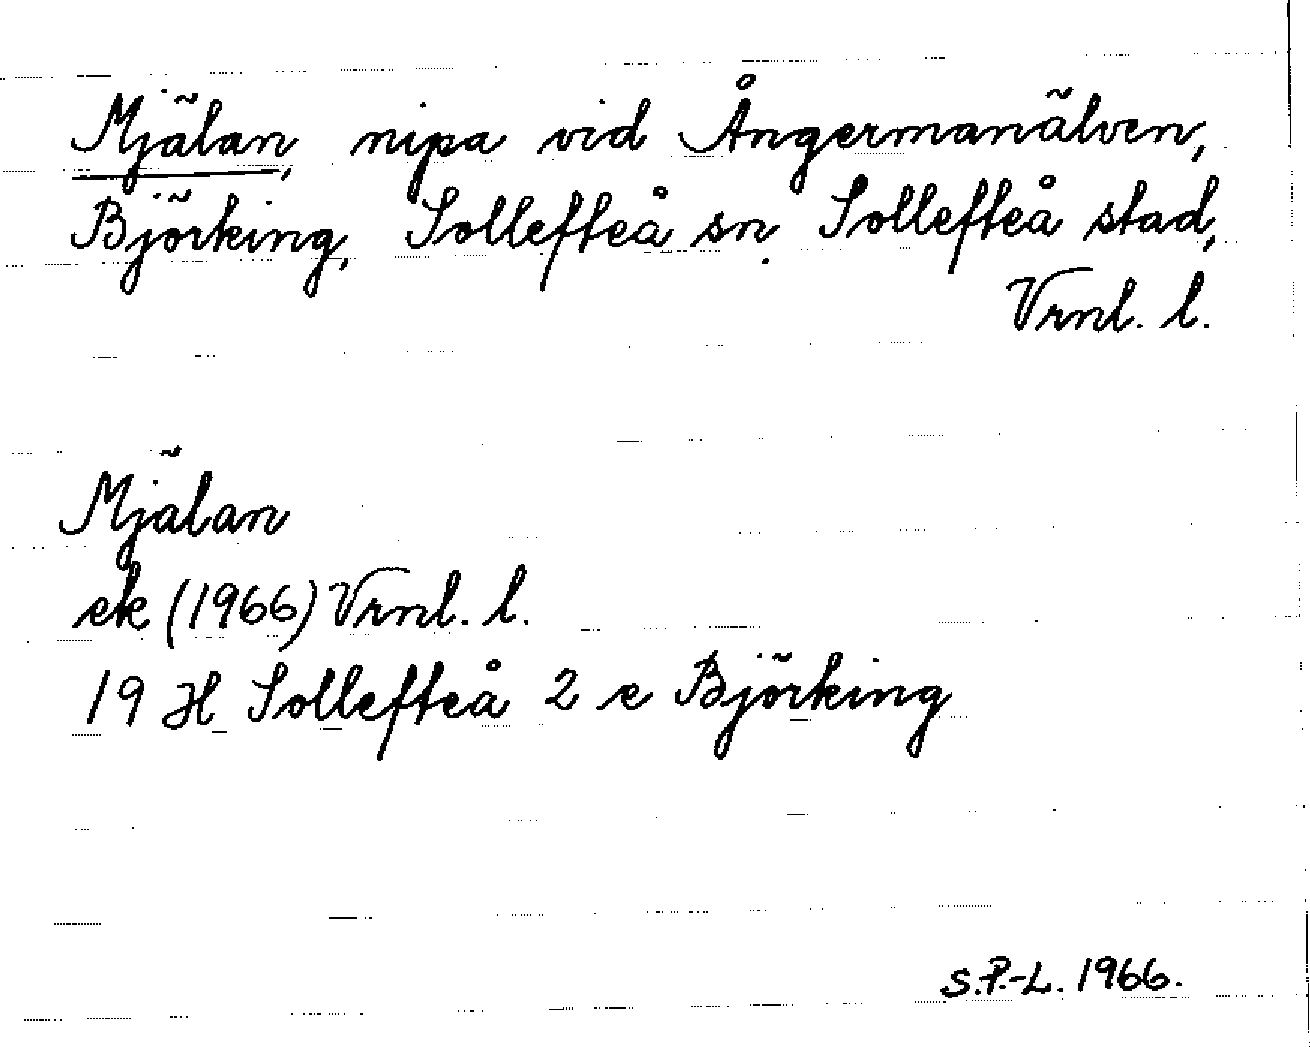 Mjälan, nipa vid Ångermanälven,
Björking, Sollefteå sn. Sollefteå stad,
Vrnl. l.
Mjälan
ek (1966) Vrnl. l.
19 H Sollefteå 2 e Björking
S.P.-L. 1966.